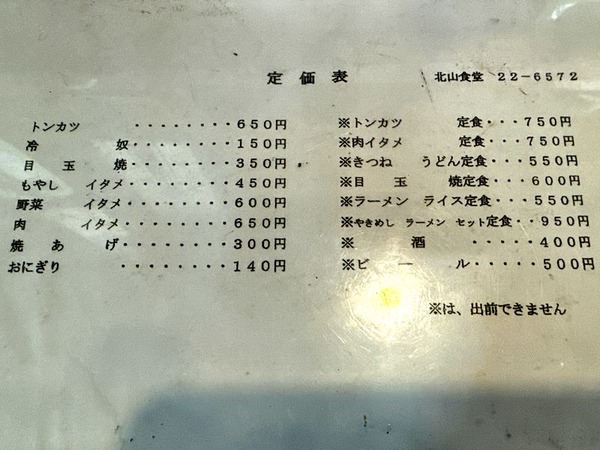 定価表　北山食堂　22－6572
トンカツ　・・・・・・・・650円
冷　奴・・・・・・・・150円
目　玉　焼・・・・・・・・350円
もやし　イタメ・・・・・・・・450円
野菜　イタメ・・・・・・・・600円
肉　イタメ・・・・・・・・650円
焼　あ　げ・・・・・・・・300円
おにぎり　・・・・・・・・140円
※トンカツ　定食・・・750円
※肉イタメ　定食・・・750円
※きつね　うどん定食・・・550円
※目　玉　焼定食・・・600円
※ラーメン　ライス定食・・・550円
※やきめし　ラーメン　セット定食・・950円
※　酒　・・・・・400円
※ビ　ー　ル・・・・・500円
※は、出前できません